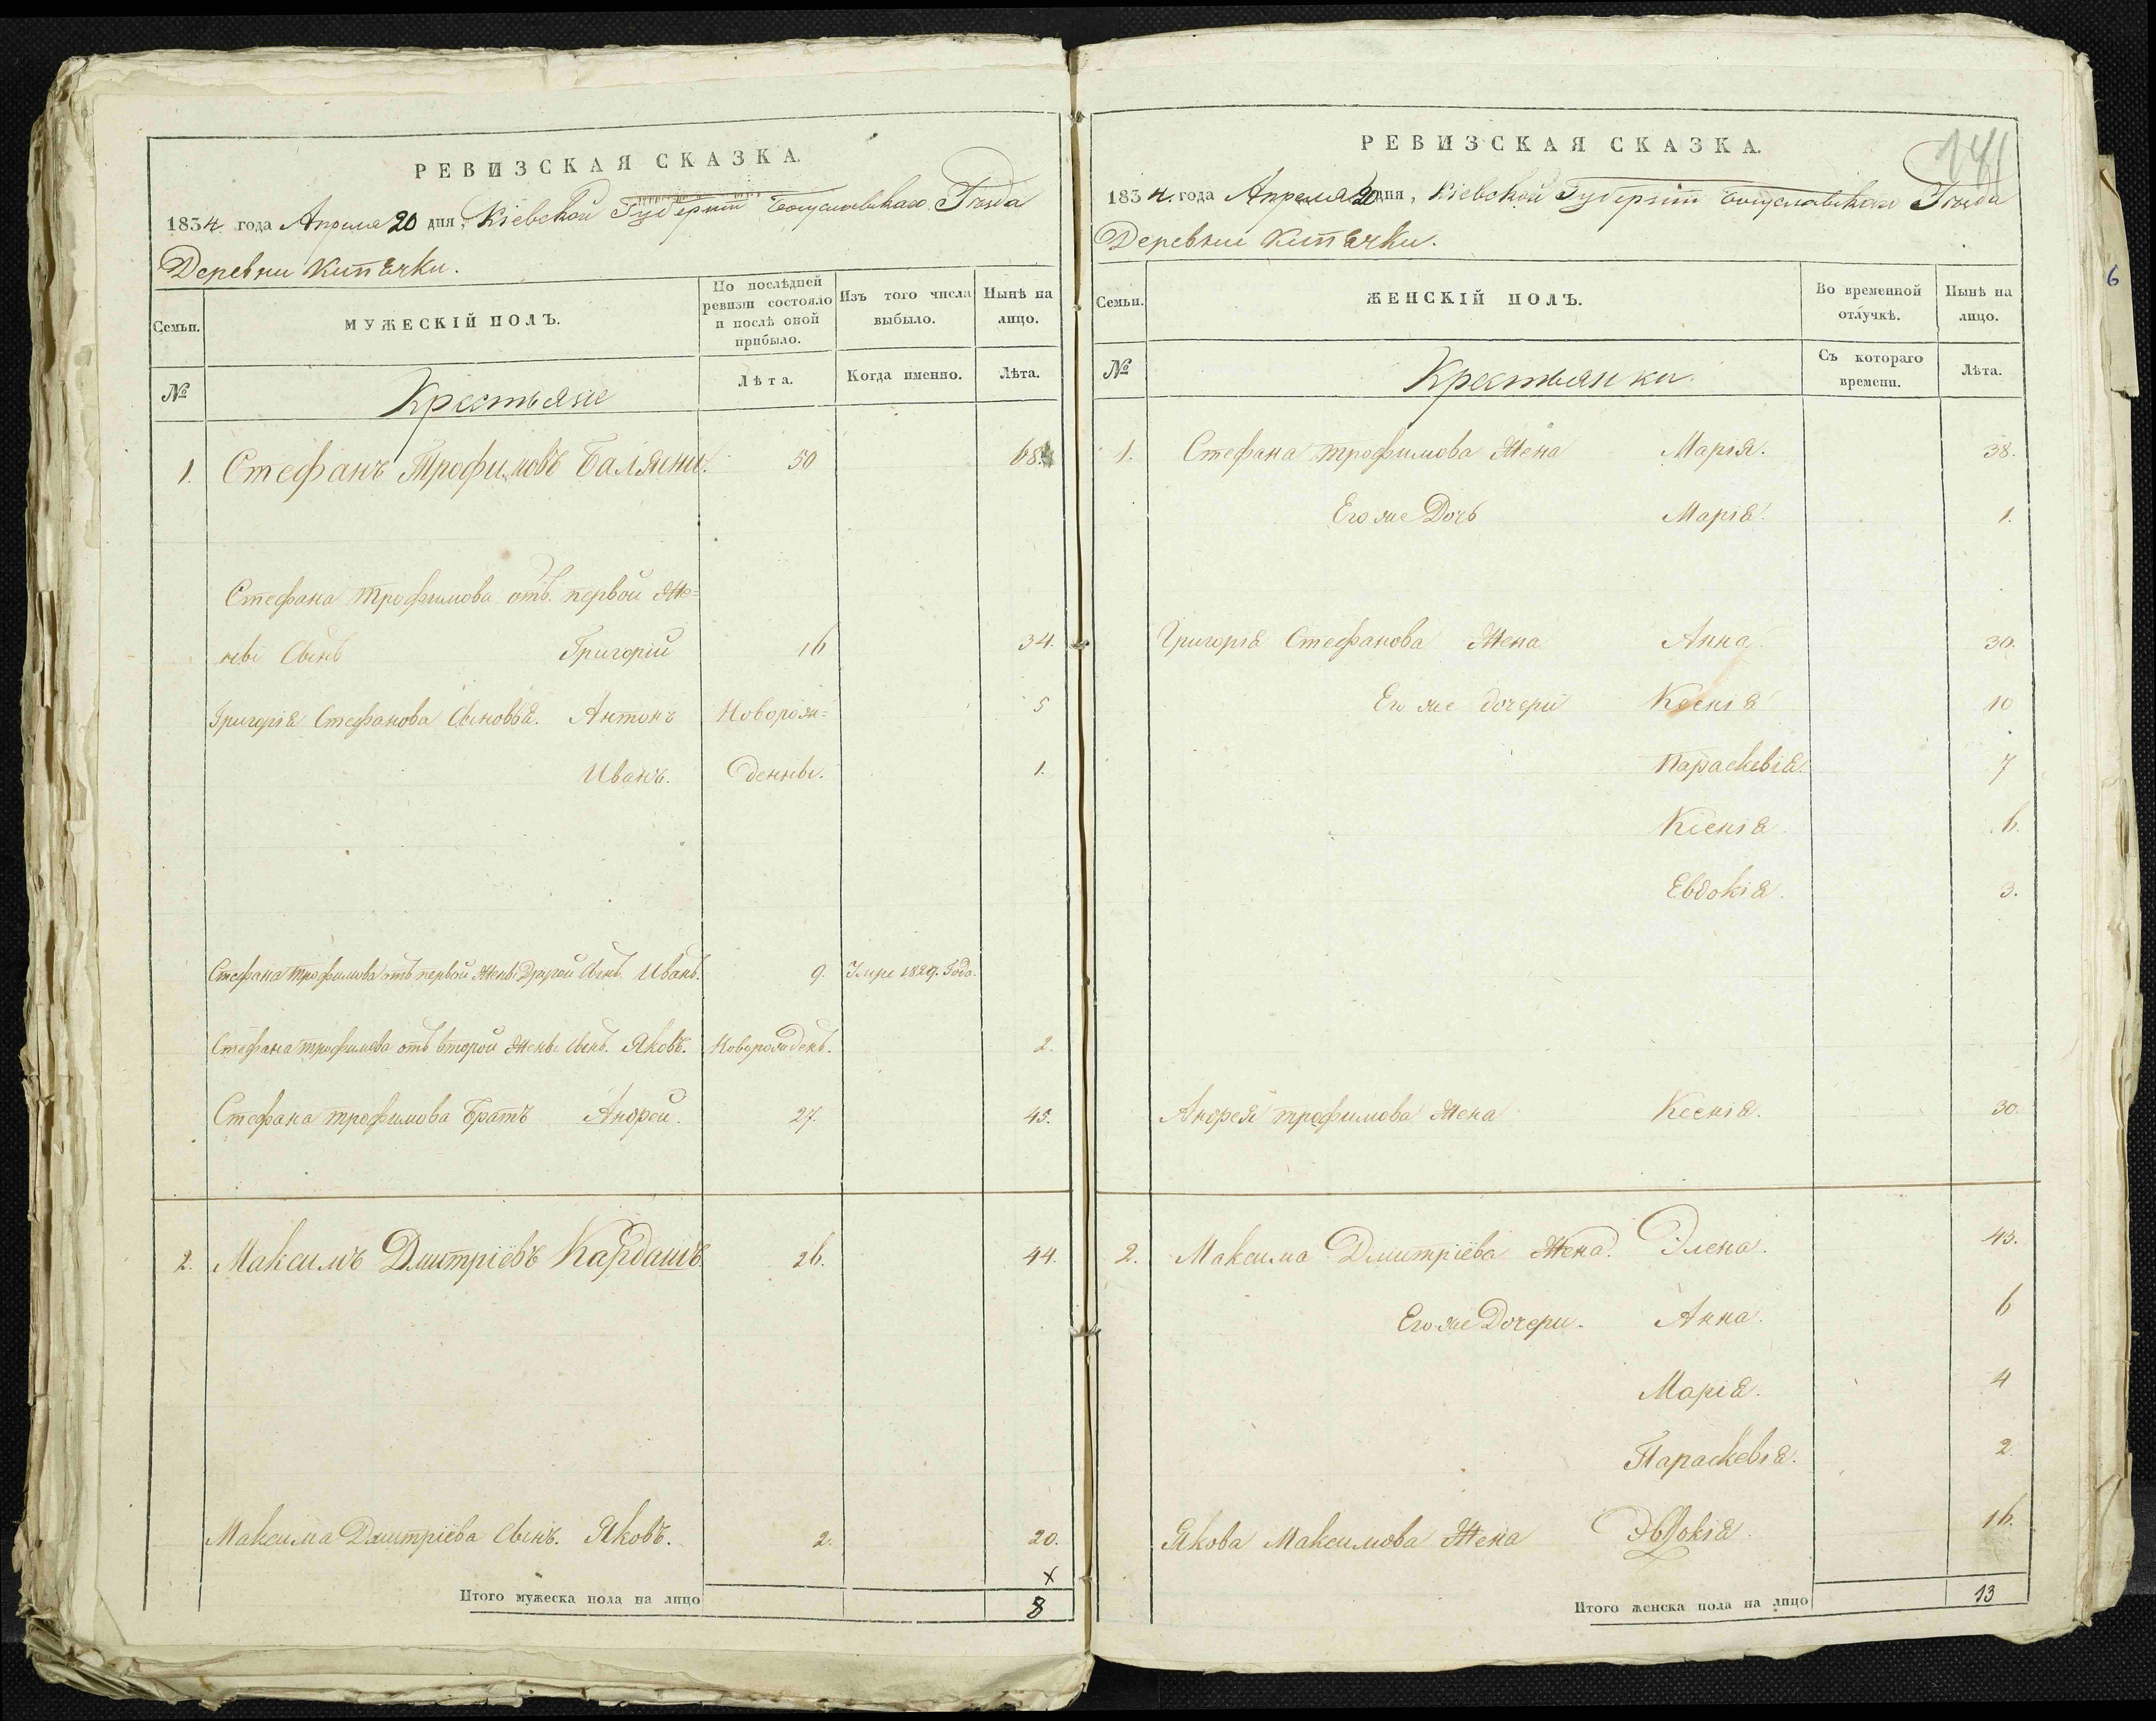 РЕВИЗСКАЯ СКАЗКА.
1834. года Апреля 20 дня, Кіевской Губерніи Богуславскаго Уезда
Деревни Кипячки.
Семьи.
МУЖЕСКІЙ ПОЛЪ.
По послѣдней ревизіи состояло и послѣ оной прибыло.
Изъ того числа выбыло.
Нынѣ на лицо.
№
Крестьяне
Лѣта.
Когда именно.
Лѣта.
1. Стефанъ Трофимовъ Балясны. 50 68.
Стефана Трофимова отъ первой Же=
ны Сынъ Григорій 16 34.
Григорія Стефанова Сыновья. Антонъ Новорож= 5
Иванъ. денны. 1.
Стефана Трофимова отъ первой Жены Другой Сынъ Иванъ. 9. Умре 1829. Года.
Стефана Трофимова отъ второй Жены Сынъ. Яковъ. Новорожденъ. 2.
Стефана Трофимова Братъ Андрей. 27. 45.
2. Максимъ Дмитріевъ Кардашъ 26. 44.
Максима Дмитріева Сынъ. Яковъ. 2. 20.
х
Итого мужеска пола на лицо 8
РЕВИЗСКАЯ СКАЗКА.
1834. года Апреля 20 дня, Кіевской Губерніи Богуславскаго Уезда
Деревни Кипячки.
Семьи.
ЖЕНСКІЙ ПОЛЪ.
Во временной отлучкѣ.
Нынѣ на лицо.
№
Крестьянки.
Съ котораго времени.
Лѣта.
1. Стефана Трофимова Жена Марія. 38.
Его же Дочь Марія. 1.
Григорія Стефанова Жена Анна. 30.
Его же дочери Ксенія 10
Параскевія. 7
Ксенія 6.
Евдокія. 3.
Андрея Трофимова Жена Ксенія. 30.
2. Максима Дмитріева Жена. Элена. 43.
Его же Дочери. Анна. 6
Марія. 4
Параскевія. 2.
Якова Максимова Жена Эвдокія. 16.
Итого женска пола на лицо 13
6